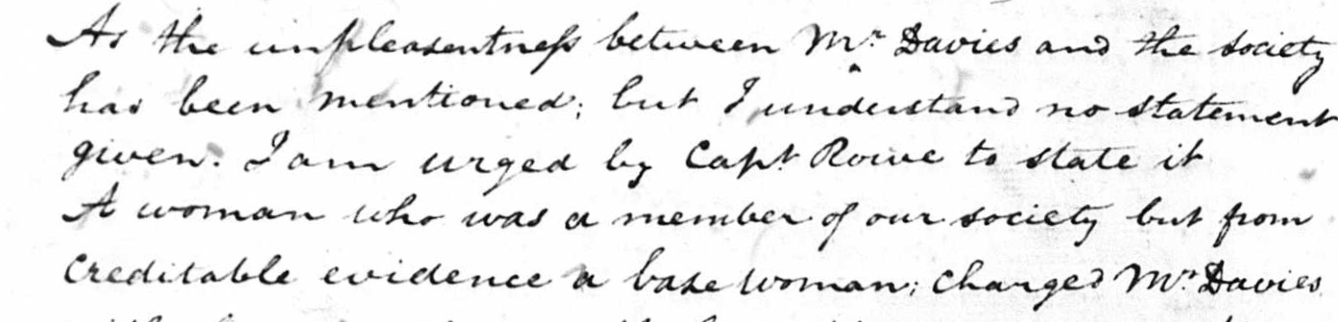 As the unpleasentness between Mr. Davies and the society
has been mentioned; but I understand no statement
given. I am urged by Capt Rowe to state it
A woman who was a member of our society but from
creditable evidence a base woman; charged Mr. Davies